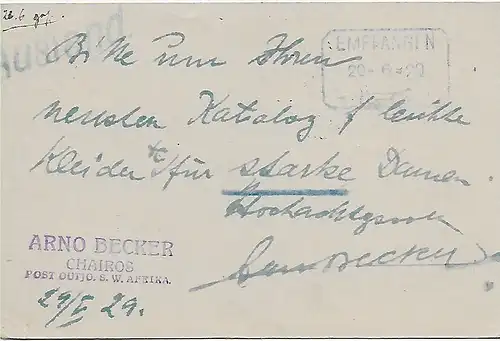 26.6
Ausland.
EMPFANGEN
Bitte um Ihren
20. 6.
neusten Katalog f leichte
Kleider etc für starke Damen.
Hochachtungsvoll
Arno Becker
ARNO BECKER
CHAIROS
POST OUTJO. S. W. AFRIKA.
29/5 29.